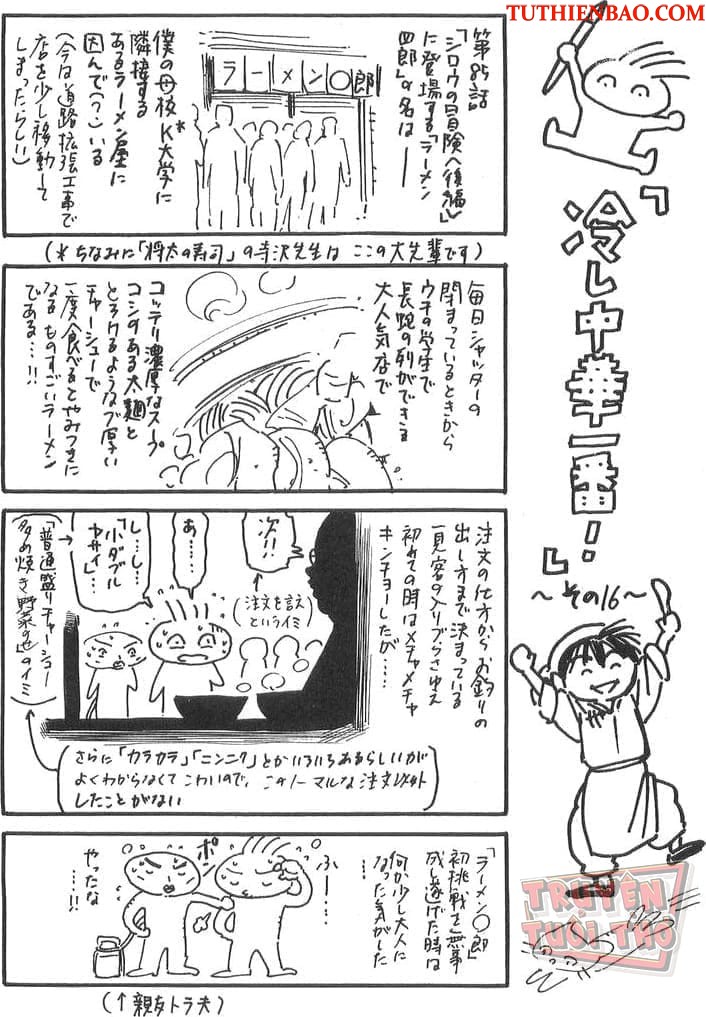 TUTHIENBAO.COM
「冷し中華一番!」
〜その16〜
第85話
「シロウの冒険へ後編」
に登場する「ラーメン
四郎」の名は——
ラーメン〇郎
僕の母校K大学に*
隣接する
あるラーメン屋に
因んで(?)いる
(今は道路拡張工事で
店を少し移動して
しまったらしい)
(*ちなみに「将太の寿司」の寺沢先生は ここの大先輩です)
毎日シャッターの
閉まっているときから
ウチの学生で
長蛇の列ができる
大人気店で
コッテリ濃厚なスープ
コシのある太麺と
とろけるようなブ厚い
チャーシューで
一度食べるとやみつきに
なる ものすごいラーメン
である…!!
注文の仕方からお釣りの
出し方まで決まっている
一見客の入りづらさゆえ
初めての時はメチャメチャ
キンチョーしたが……
次!!
(注文を言え
というイミ)
あ……
し…し…
「小ダブル
ヤサイ」…
「普通盛りチャーシュー
多め焼き野菜のせ」のイミ
(さらに「カラカラ」「ニンニク」とかいろいろあるらしいが
よくわからなくてこわいので、このノーマルな注文以外
したことがない)
「ラーメン〇郎」
初挑戦を無事
成し遂げた時は
何か少し大人に
なった気がした
ふー……
ポン
やったな
……!!
(↑親友トラ夫)
TRUYỆN
TUỔI THƠ